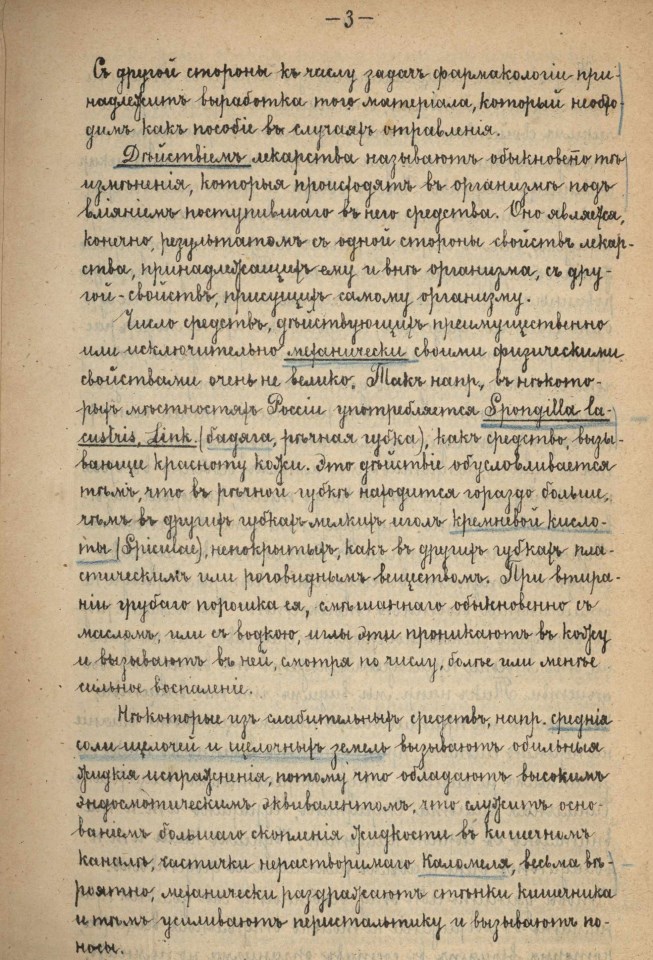 —3—
Съ другой стороны къ числу задачъ фармакологіи при-
надлежитъ выработка того матеріала, который необхо-
димъ какъ пособіе въ случаяхъ отравленія.
Дѣйствіемъ лекарства называютъ обыкновенно тѣ
измѣненія, которыя происходятъ въ организмѣ подъ
вліяніемъ поступившаго въ него средства. Оно является,
конечно, результатомъ съ одной стороны свойствъ лекар-
ства, принадлежащихъ ему и внѣ организма, съ дру-
гой - свойствъ, присущихъ самому организму.
Число средствъ, дѣйствующихъ преимущественно
или исключительно механически своими физическими
свойствами очень не велико. Такъ напр., въ нѣкото-
рыхъ мѣстностяхъ Россіи употребляется Spongilla la-
custris, Link. (бадяга, рѣчная губка), какъ средство, вызы-
вающе красноту кожи. Это дѣйствіе обусловливается
тѣмъ, что въ рѣчной губкѣ находится гораздо больше,
чѣмъ въ другихъ губкахъ мелкихъ иголъ кремневой кисло-
ты (Spiculae), непокрытыхъ, какъ въ другихъ губкахъ пла-
стическимъ или роговиднымъ веществомъ. При втира-
ніи грубаго порошка ея, смѣшаннаго обыкновенно съ
масломъ, или съ водкою, иглы эти проникаютъ въ кожу
и вызываютъ въ ней, смотря по числу, болѣе или менѣе
сильное воспаленіе.
Нѣкоторые изъ слабительныхъ средствъ, напр. среднія
соли щелочей и щелочныхъ земель вызываютъ обильныя
жидкія испражненія, потому что обладаютъ высокимъ
эндосмотическимъ эквивалентомъ, что служитъ осно-
ваніемъ большаго скопленія жидкости въ кишечномъ
каналѣ, частички нерастворимаго каломеля, весьма вѣ-
роятно, механически раздражаютъ стѣнки кишечника
и тѣмъ усиливаютъ перистальтику и вызываютъ по-
носы.